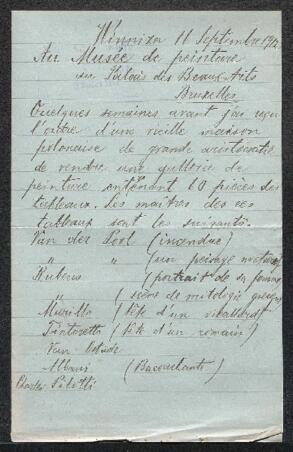 Winnixa 11 Septembre 19
Au Musée de peinture
au Palais des Beaux-Arts
Bruxelles
Quelques semaines avant j'ai reçu
l'ordre d'une vieille maison
polonaise de grande aristocratie
de vendre une gallerie de
peinture contenant 60 pièces des
tableaux. Les maîtres des ces
tableaux sont les suivants.
Van der Pool (incendie)
" " (un paysage nocturne)
Rubens (portrait de sa femme
" (scène de mitologie grecque
Murillo (tête d'un vieillard)
Tintoretto (tête d'un romain)
Van
Albani (Baccantes)